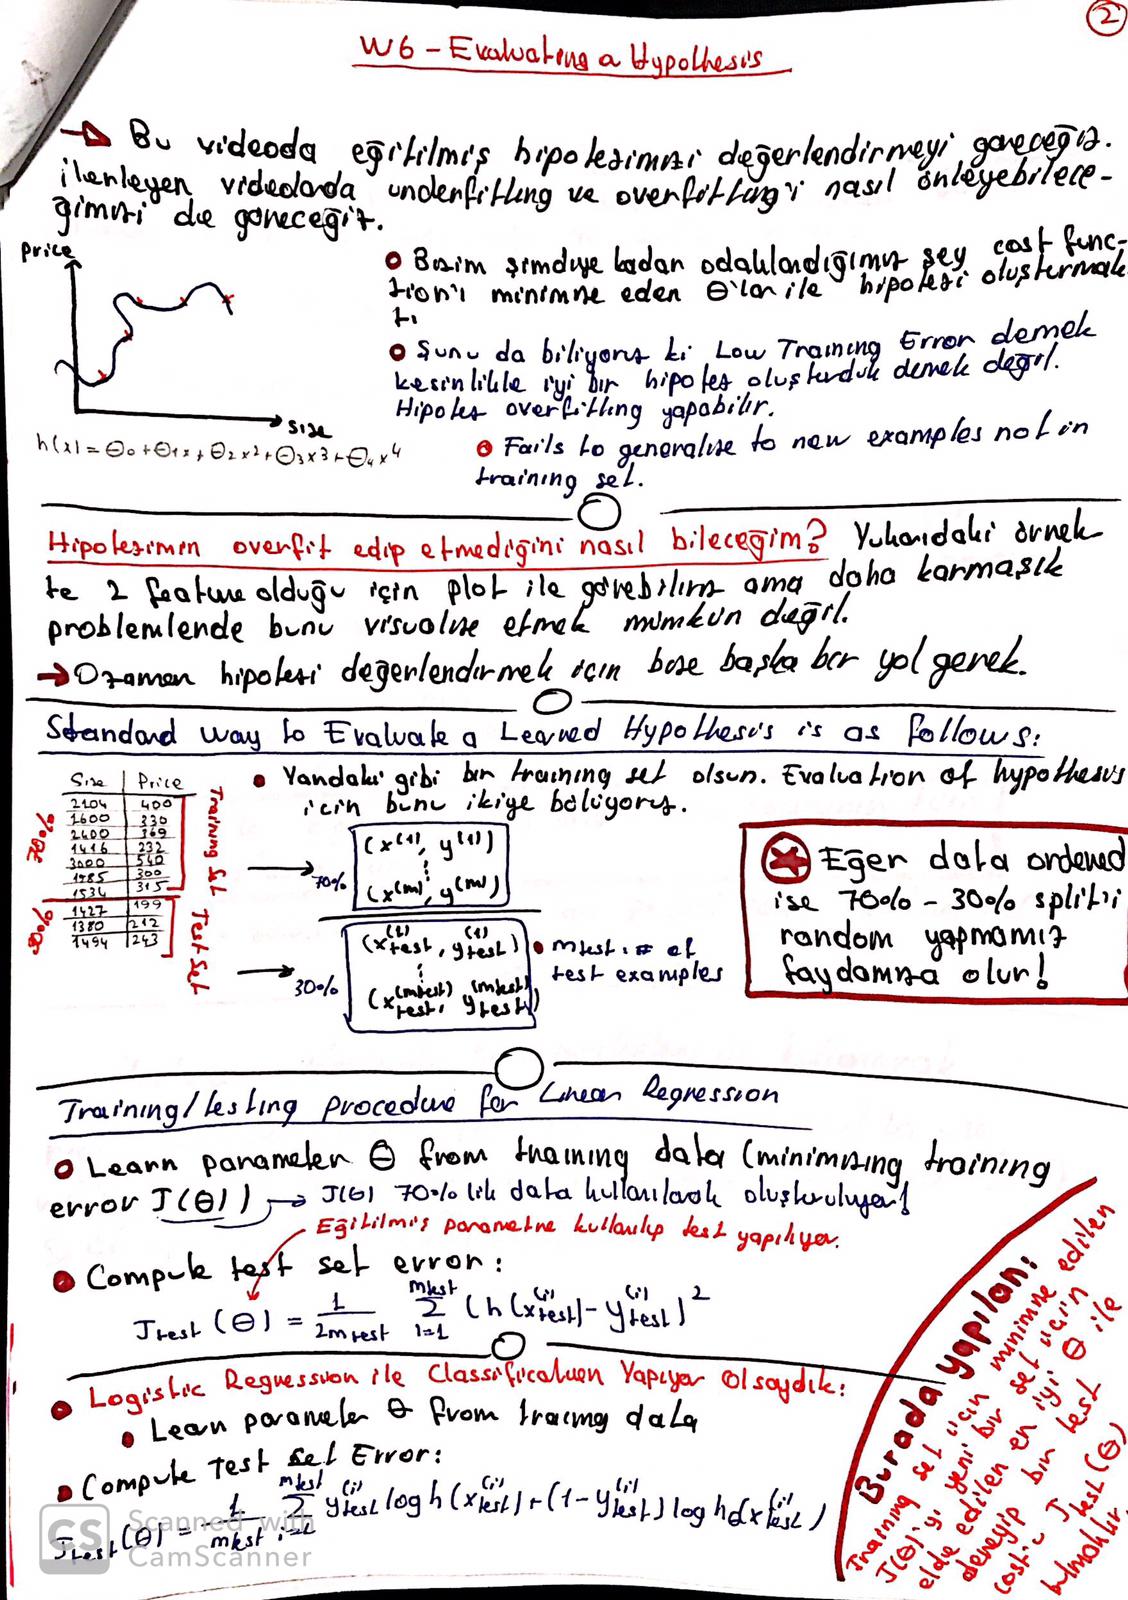 2
W6 - Evaluating a Hypothesis
Bu videoda eğitilmiş hipotezimizi değerlendirmeyi göreceğiz.
İlerleyen videolarda underfitting ve overfitting'i nasıl önleyebilece-
ğimizi de göreceğiz.
Price
Size
h(x) = θ0 + θ1x + θ2x2 + θ3x3 + θ4x4
Bizim şimdiye kadar odaklandığımız şey cost func-
tion'ı minimize eden θ'lar ile hipotezi oluşturmak
tı
Şunu da biliyoruz ki Low Training Error demek
kesinlikle iyi bir hipotez oluşturduk demek değil.
Hipotez overfitting yapabilir.
Fails to generalise to new examples not in
training set.
Hipotezimin overfit edip etmediğini nasıl bileceğim? Yukarıdaki örnek
te 2 feature olduğu için plot ile görebiliriz ama daha karmaşık
problemlerde bunu visualise etmek mümkün değil.
Ozaman hipotezi değerlendirmek için bize başka bir yol gerek.
Standard way to Evaluate a Learned Hypothesis is as follows:
Size Price
2104 400
1600 330
2400 369
1416 232
3000 540
1985 300
1534 315
1427 199
1380 212
1494 243
%70
%30
Training Set
Test Set
Yandaki gibi bir training set olsun. Evaluation of hypothesis
icin bunu ikiye bölüyoruz.
70%
(x(1), y(1))
⋮
(x(m), y(m))
30%
(x(1)test, y(1)test)
⋮
(x(mtest)test, y(mtest)test)
mtest: # of
test examples
Eğer data ordered
ise 70% - 30% split'i
random yapmamız
faydamıza olur!
Training/testing procedure for Linear Regression
Learn parameter θ from training data (minimizing training
error J(θ)) → J(θ) 70% lik data kullanılarak oluşturuluyor!
Eğitilmiş parametre kullanılıp test yapılıyor.
Compute test set error:
Jtest(θ) = 1/2mtest Σ mtest i=1 (h(x(i)test) - y(i)test)2
Logistic Regression ile Classification Yapıyor Olsaydık:
Learn parameter θ from training data
Compute Test set Error:
Jtest(θ) = 1/mtest Σ mtest i=1 y(i)test log h(x(i)test) + (1 - y(i)test) log hθ(x(i)test)
Burada yapılan:
Training set için minimize edilen
J(θ)'yı yeni bir set için
elde edilen en iyi θ ile
deneyip bir test
cost'u Jtest(θ)
bulmaktır.
CS Scanned with
CamScanner